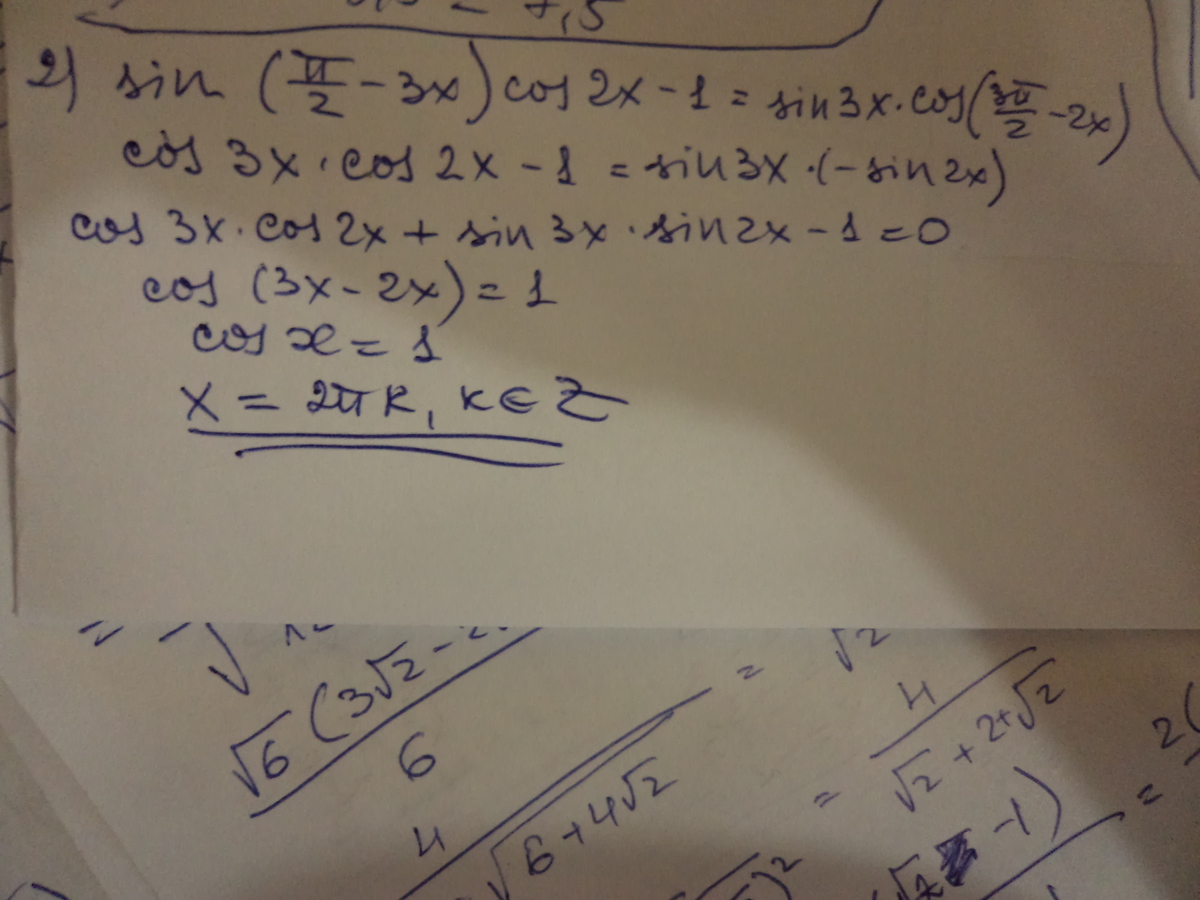 = 7,5
2) sin (π/2 - 3x) cos 2x - 1 = sin 3x · cos(3π/2 - 2x)
cos 3x · cos 2x - 1 = sin 3x · (- sin 2x)
cos 3x · cos 2x + sin 3x · sin 2x - 1 = 0
cos (3x - 2x) = 1
cos x = 1
x = 2πk, k ∈ Z
√6 (3√2 - 2
6
= √2
4
√6 + 4√2
= 4
√2 + 2 + √2
- 1) =
2(
)²